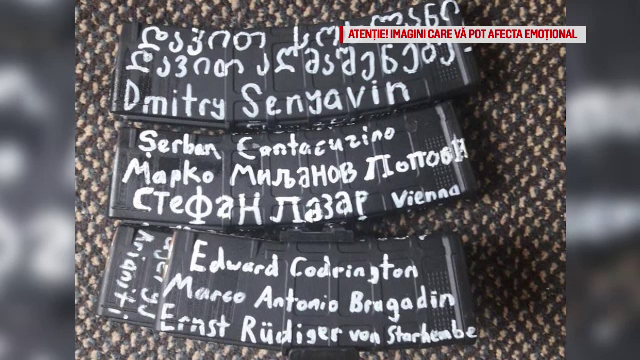 ATENȚIE! IMAGINI CARE VĂ POT AFECTA EMOȚIONAL
დავით
დავით აღმაშენებე
Dmitry Senyavin
Șerban Cantacuzino
Марко Миљанов Попови
Стефан Лазар Vienna
Edward Codrington
Marco Antonio Bragadin
Ernst Rüdiger von Starhembe